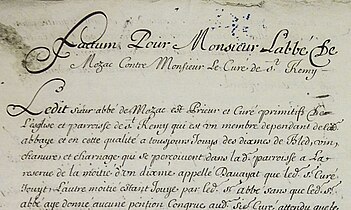 Factum Pour Monsieur Labbé De
Mozac Contre Monsieur Le Curé de St Remy
Ledit sieur abbé de Mozac est Prieur et Curé primitif De
L'eglise et parroisse de St Remy qui est un membre dependant de lad
abbaye et en cette qualité a tousiours Jouys des dixmes de Bled, vin
chanure et charnage qui se perçouvent dans lad parroisse a La
reserve de la moitié d'un dixme appellé Bauayat que led St Curé
Jouyt Lautre moitié estant Jouye par led St abbé sans que led St
abbé aye donné aucune pention Congrue aud St Curé attendu que le